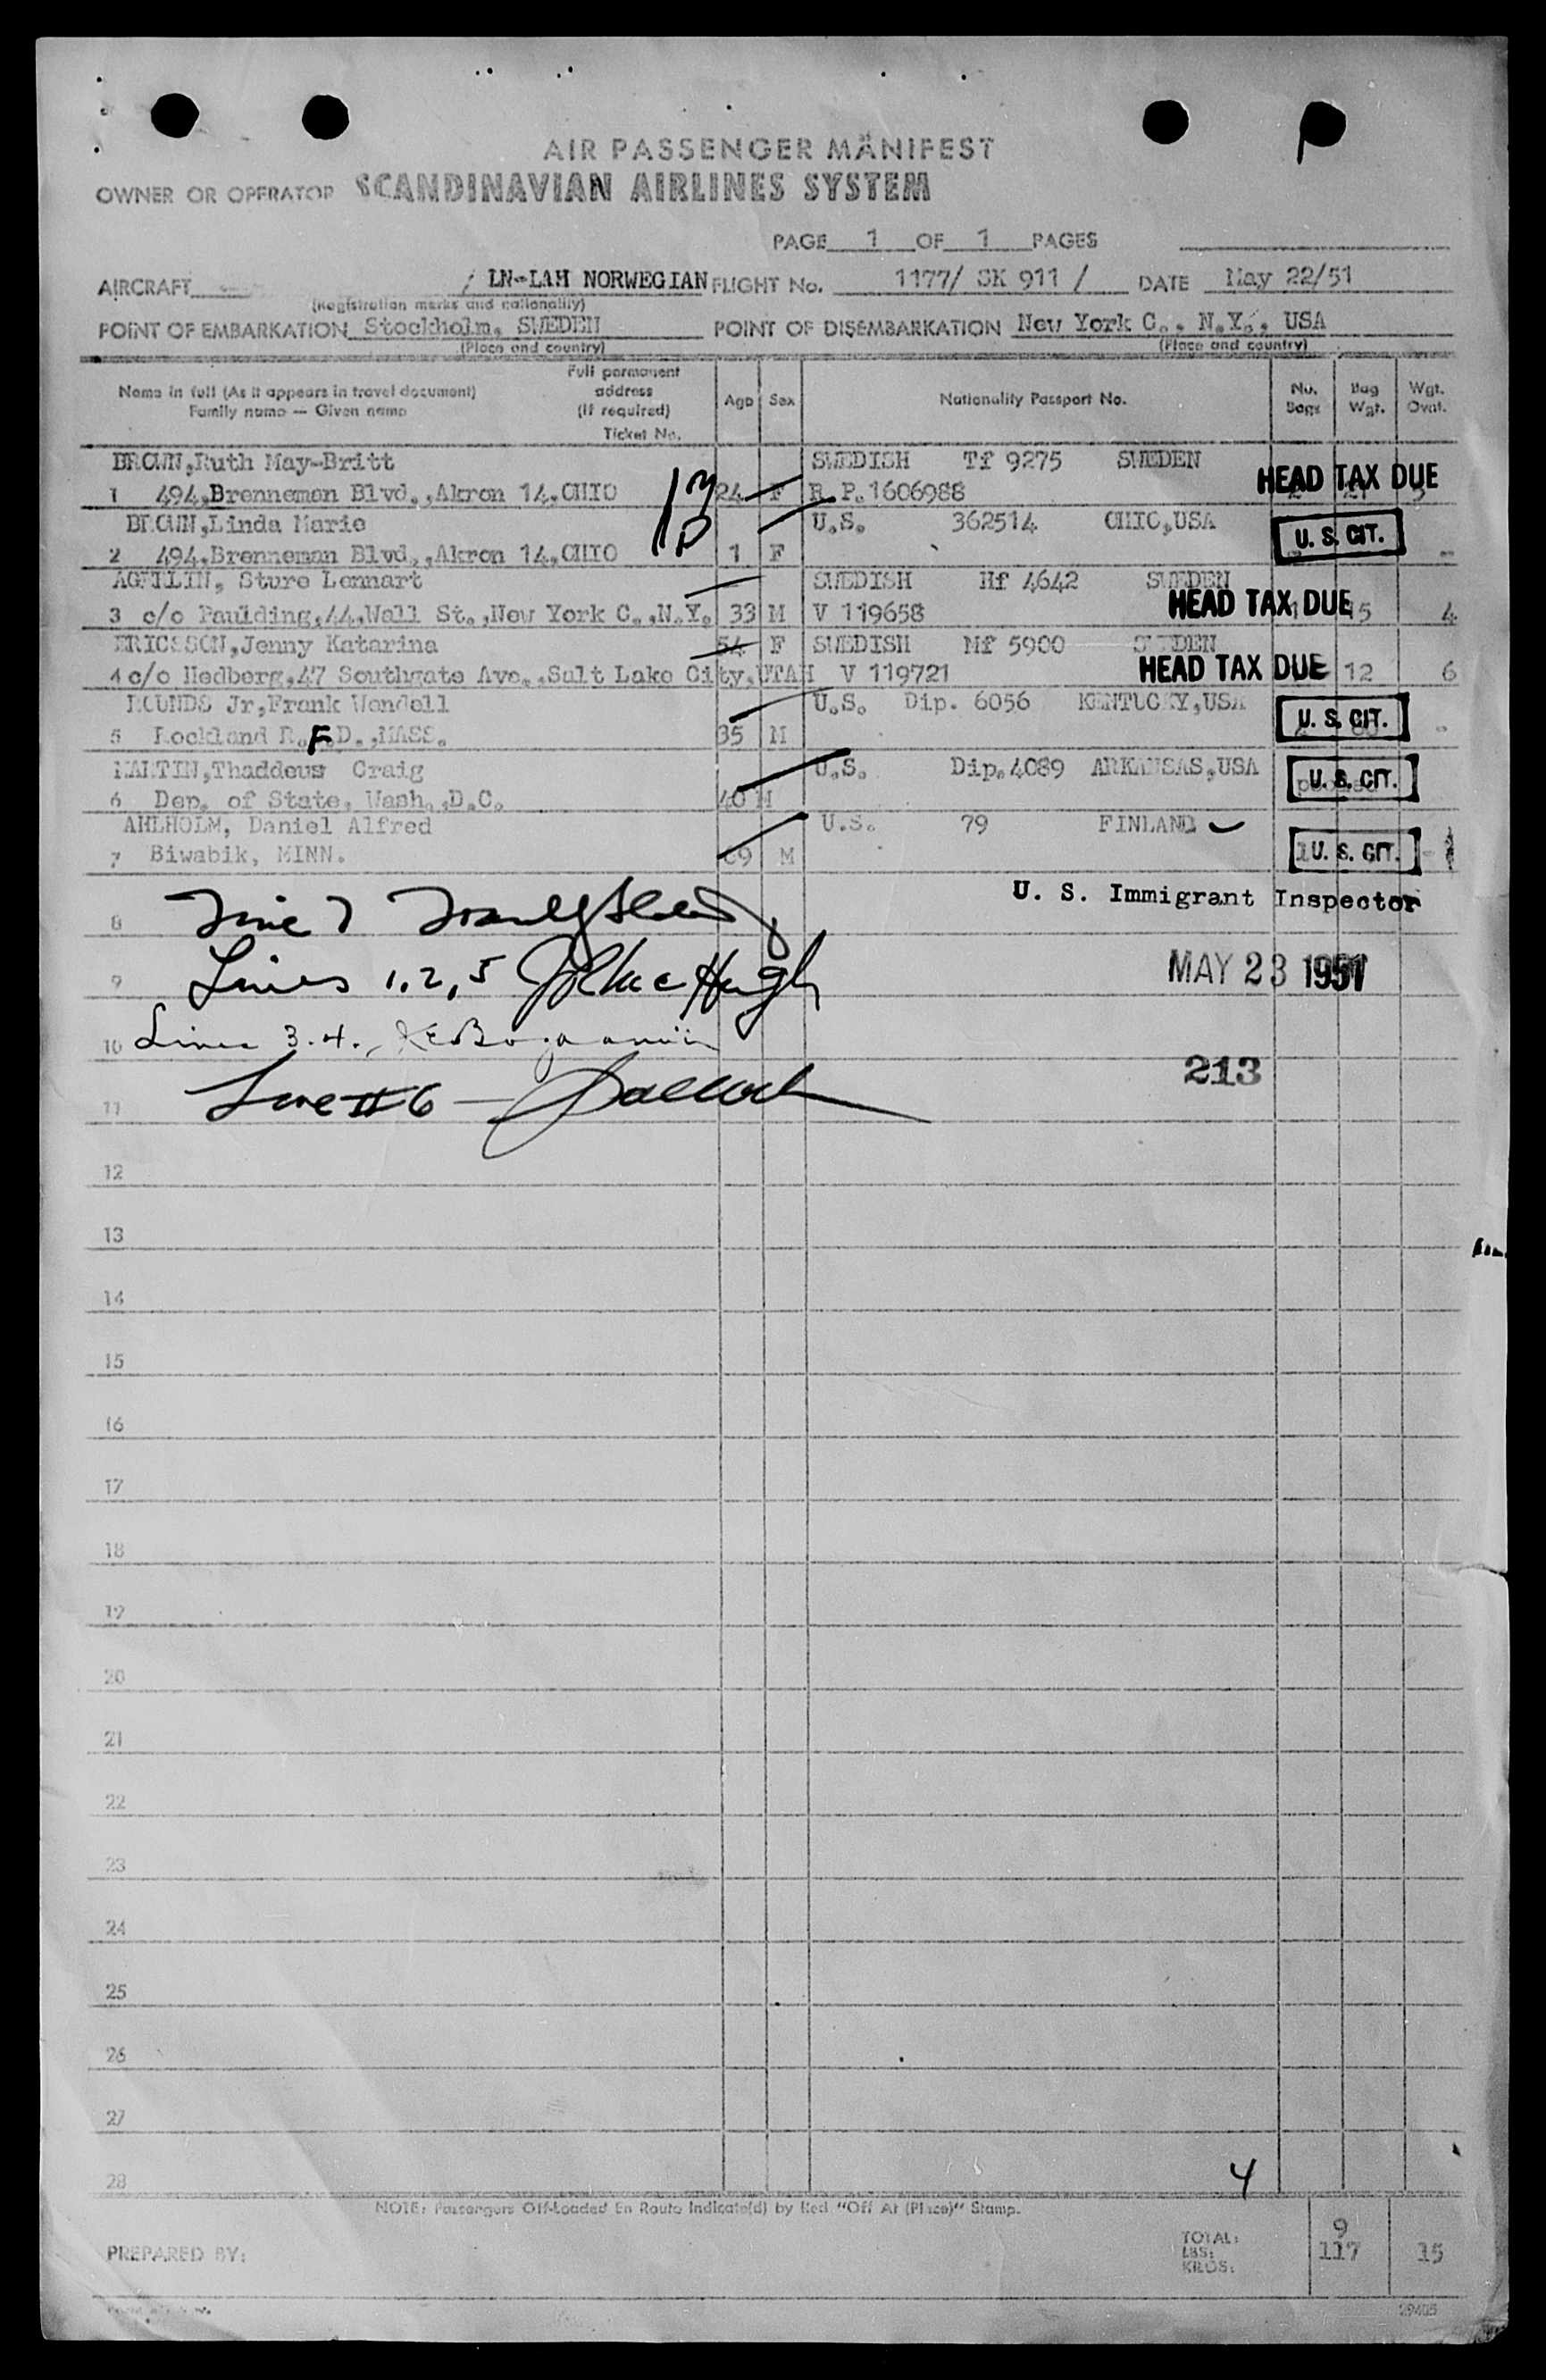 AIR PASSENGER MANIFEST
OWNER OR OPERATOR SCANDINAVIAN AIRLINES SYSTEM
PAGE 1 OF 1 PAGES
AIRCRAFT / LN-LAH NORWEGIAN FLIGHT No. 1177/ SK 911 / DATE May 22/51
(Registration marks and nationality)
POINT OF EMBARKATION Stockholm, SWEDEN POINT OF DISEMBARKATION New York C., N.Y., USA
(Place and country) (Place and country)
Name in full (As it appears in travel document) Family name — Given name
Full permanent address (if required) Ticket No.
Age Sex Nationality Passport No. No. Bags Bag Wgt. Wgt. Ovnt.
BROWN,Ruth May-Britt SWEDISH Tf 9275 SWEDEN
1 494,Brenneman Blvd.,Akron 14.OHIO 24 F R.P.1606988 HEAD TAX DUE
BROWN,Linda Marie U.S. 362514 OHIO,USA
2 494,Brenneman Blvd.,Akron 14,OHIO 1 F U. S. CIT. -
Sture Lennart SWEDISH Hf 4642 SWEDEN
3 c/o Paulding,44,Wall St.,New York C.,N.Y. 33 M V 119658 HEAD TAX DUE 15 4
ERICSSON,Jenny Katarina 54 F SWEDISH Mf 5900 SWEDEN
4 c/o Hedberg,47 Southgate Ave.,Salt Lake City,UTAH V 119721 HEAD TAX DUE 12 6
Jr,Frank Wendell U.S. Dip. 6056 KENTUCKY,USA
5 Rockland R.F.D.,MASS. 35 M U. S. CIT. -
MARTIN,Thaddeus Craig U.S. Dip.4089 ARKANSAS,USA
6 Dep. of State, Wash.,D.C. 40 M U. S. CIT.
AHLHOLM, Daniel Alfred U.S. 79 FINLAND
7 Biwabik, MINN. 69 M U. S. CIT.
U. S. Immigrant Inspector
8 Line 7
9 Lines 1,2,5
MAY 23 1951
10 Lines 3.4.
213
11 Line #6 -
12
13
14
15
16
17
18
19
20
21
22
23
24
25
26
27
28 4
NOTE: Passengers Off-Loaded En Route Indicate(d) by Red "Off At (Place)" Stamp.
PREPARED BY:
TOTAL: 9
LBS: 117 15
KILOS:
29405